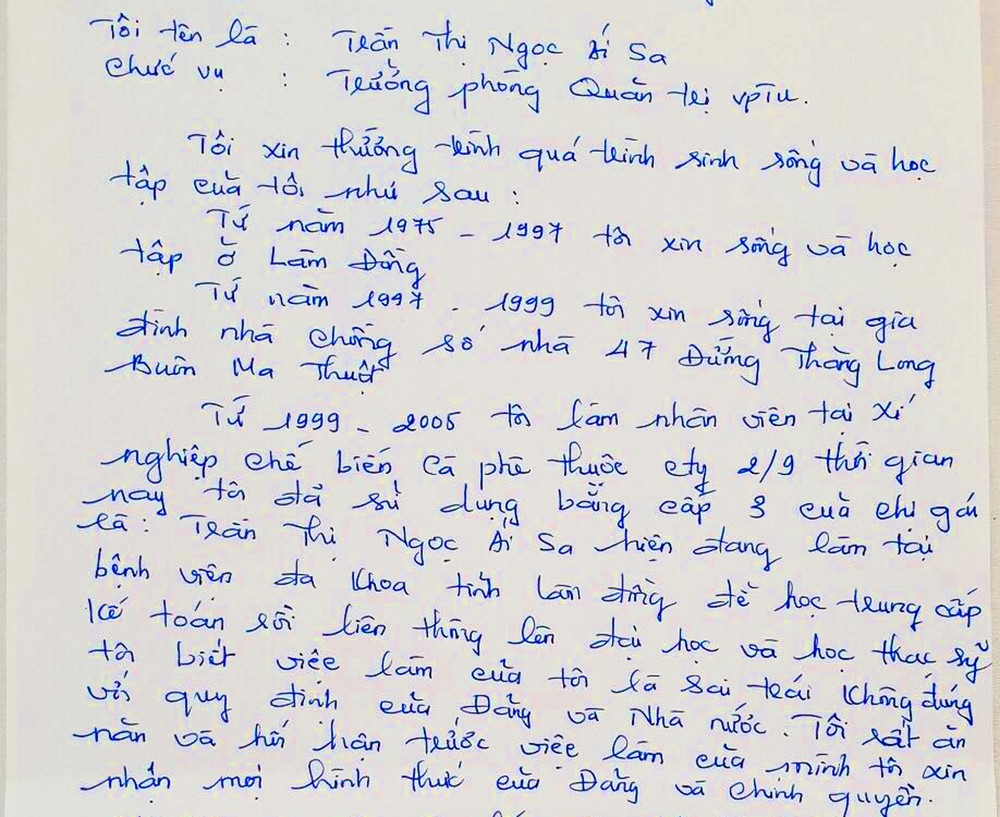 Tôi tên là : Trần Thị Ngọc Ái Sa
Chức vụ : Trưởng phòng Quản trị VPTU.
Tôi xin thường trình quá trình sinh sống và học
tập của tôi như sau :
Từ năm 1975 - 1997 tôi xin sống và học
tập ở Lâm Đồng
Từ năm 1997 - 1999 tôi xin sống tại gia
đình nhà chồng số nhà 47 Đường Thăng Long
Buôn Ma Thuột
Từ 1999 - 2005 tôi làm nhân viên tại Xí
nghiệp chế biến cà phê thuộc cty 2/9 thời gian
này tôi đã sử dụng bằng cấp 3 của chị gái
là : Trần Thị Ngọc Ái Sa hiện đang làm tại
bệnh viện đa khoa tỉnh Lâm đồng để học trung cấp
kế toán rồi liên thông lên đại học và học thạc sỹ
tôi biết việc làm của tôi là sai trái không đúng
với quy định của Đảng và Nhà nước. Tôi rất ăn
năn và hối hận trước việc làm của mình tôi xin
nhận mọi hình thức của Đảng và chính quyền.